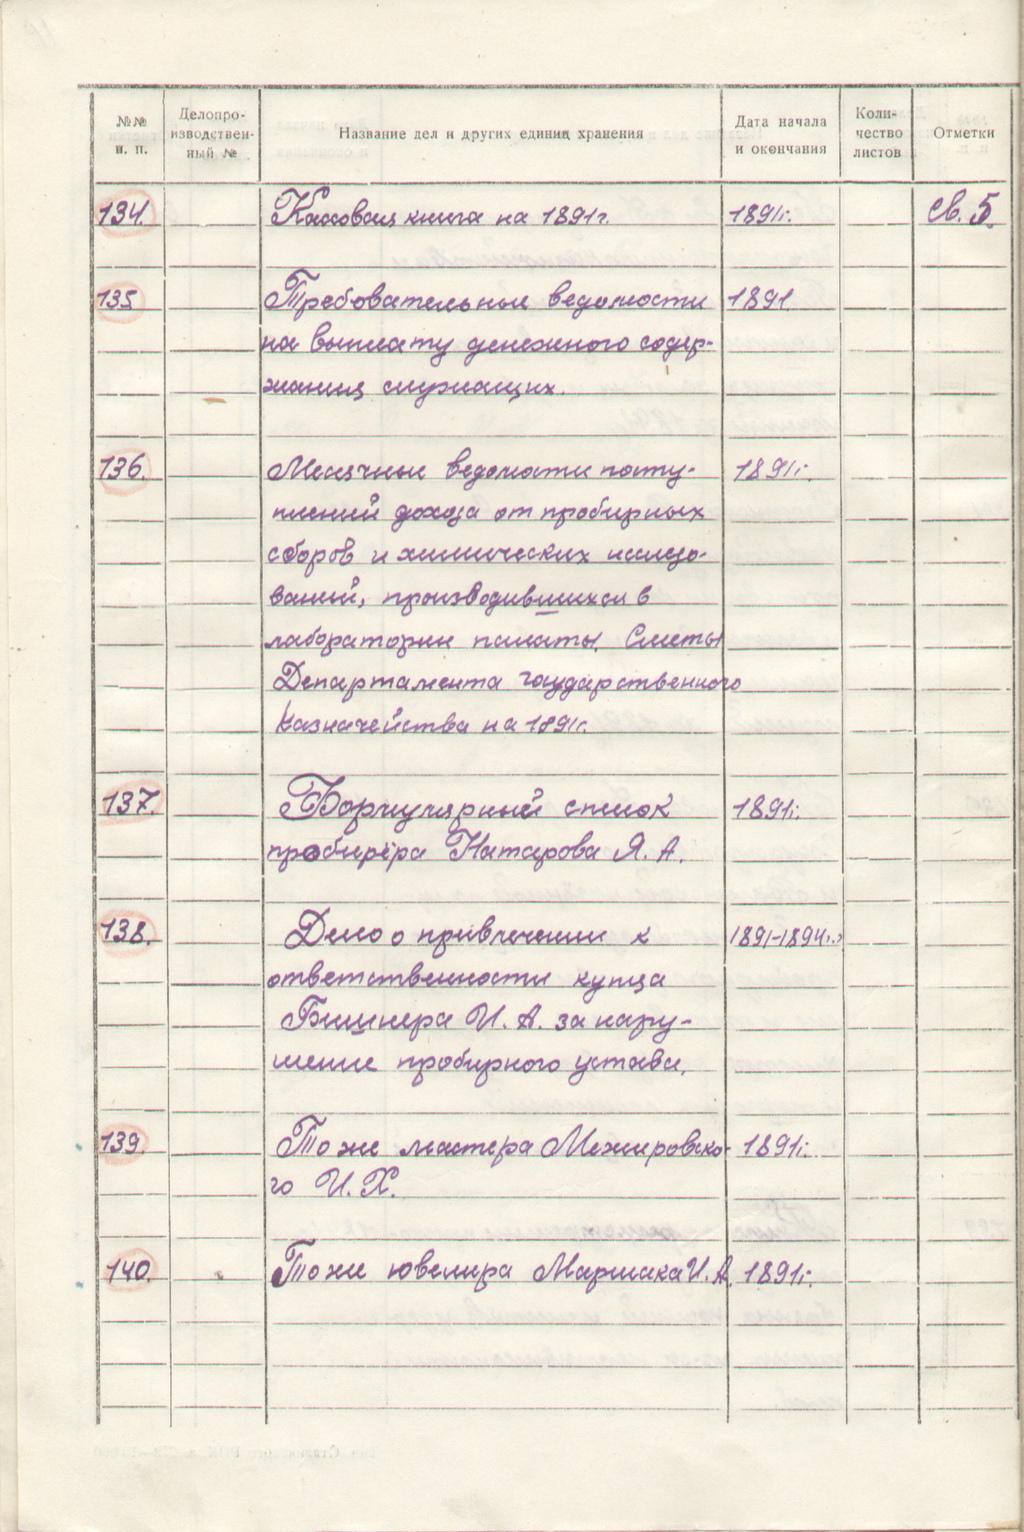 №№ п. п.
Делопро-
изводствен-
ный №
Название дел и других единиц хранения
Дата начала
и окончания
Коли-
чество
листов
Отметки
134. Кассовая книга на 1891 г. 1891г. св. 5.
135 Требовательные ведомости 1891
на выплату денежного содер-
жания служащих.
136. Месячные ведомости посту- 1891г.
плений дохода от пробирных
сборов и химических исследо-
ваний, производившихся в
лаборатории палаты. Сметы
Департамента государственного
казначейства на 1891г.
137. Формулярный список 1891г.
пробирёра Натарова Я. А.
138. Дело о привлечении к 1891-1894г.
ответственности купца
И. А. за нару-
шение пробирного устава.
139. То же мастера Межировско- 1891г.
го И. Х.
140. То же ювелира Маршака И. А. 1891г.